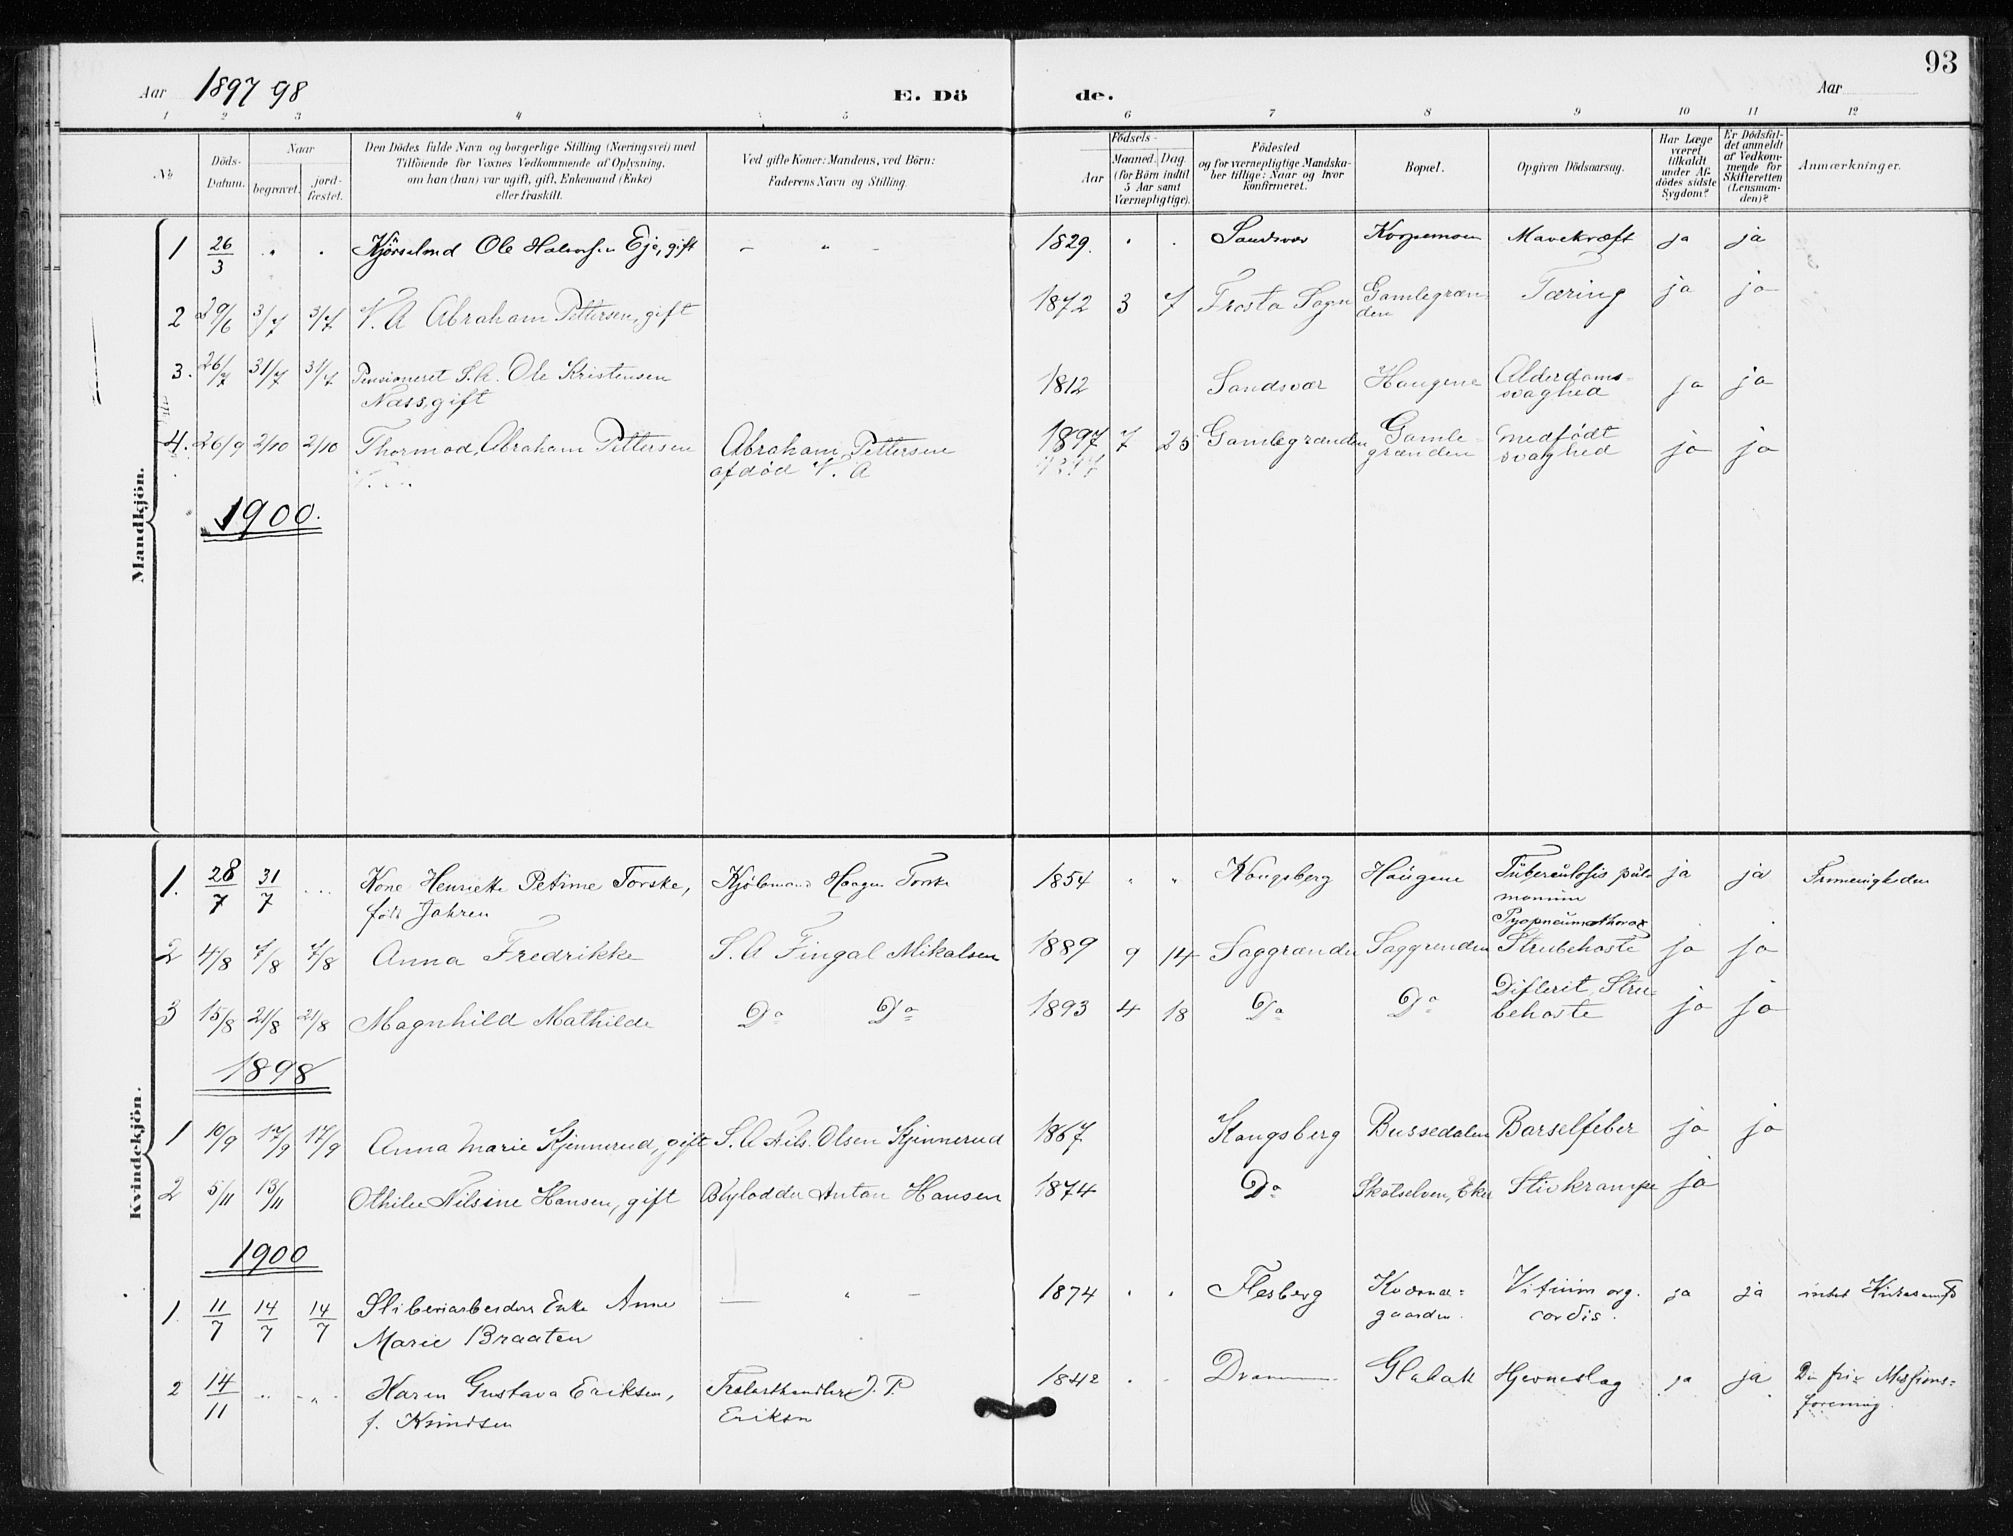 93
Aar 1897 98 E. Dö de. Aar
1 2 3 4 5 6 7 8 9 10 11 12
No Döds-Datum. Naar begravet. jord-fæstet. Den Dödes fulde Navn og borgerlige Stilling (Næringsvei) med Tilföiende for Voxnes Vedkommende af Oplysning, om han (hun) var ugift, gift, Enkemand (Enke) eller fraskilt. Ved gifte Koner: Mandens, ved Börn: Faderens Navn og Stilling. Födsels- Aar Maaned. Dag. (for Börn indtil 5 Aar samt Værnepligtige). Födested og for værnepligtige Mandskaber tillige: Naar og hvor konfirmeret. Bopæl. Opgiven Dödsaarsag. Har Læge været tilkaldt under Afdödes sidste Sygdom? Er Dödsfaldet anmeldt af Vedkommende for Skifteretten (Lensmanden)? Anmærkninger.
Mandkjön.
1 26/3 " . Ole Halvorsen Eje, gift – " – 1829. " . Sandsvær Korpemoen Mavekræft ja ja
2 29/6 3/7 3/7 V. A Abraham Pettersen, gift 1872 3 7 Frosta Sogn Gamlegræn-
den Tæring ja ja
3. 26/7 31/7 31/7 Pensioneret S.A. Ole Kristensen
Næss, gift 1812 Sandsvær Haugene Alderdoms-
svaghed ja ja
4. 26/9 2/10 2/10 Thormod Abraham Pettersen Abraham Pettersen
afdød V. A 1897 7 25 Gamlegrænden Gamle-
grænden medfödt
svaghed ja ja
1900.
Kvindekjön.
1. 28/7 31/7 ... Kone Henriette Petrine Torske,
född Jahren Kjöbmand Haagen Torske 1854 " " Kongsberg Haugene Tuberculosis pul-
monum
Pyopneumothorax ja ja Frimenigheden
2 4/8 7/8 7/8 Anna Fredrikke S. A Fingal Mikalsen 1889 9 14 Saggrænden Saggrenden Strubehoste ja ja
3 15/8 21/8 21/8 Magnhild Mathilde Do Do 1893 4 18 Do Do Difterit, Stru-
behoste ja ja
1898
1 10/9 17/9 17/9 Anna Marie Kjinnerud, gift S. A Nils Olsen Kjinnerud 1867 Kongsberg Bussedalen Barselfeber ja ja
2 5/11 13/11 Othilie Nilsine Hansen, gift Blylodder Anton Hansen 1874 Do Skotselven, Eker Stivkrampe ja
1900
1. 11/7 14/7 14/7 Sliberiarbeiders Enke Anne
Marie Braaten – " – 1874 " " Flesberg Kværne-
gaarden. Vitium org.
cordis. ja ja intet Kirkesamf
2 14/11 " " Karen Gustava Eriksen,
f. Knudsen J. P.
Eriksen 1842 " . Glabak Hjerneslag ja ja Den frie Missions-
forening.